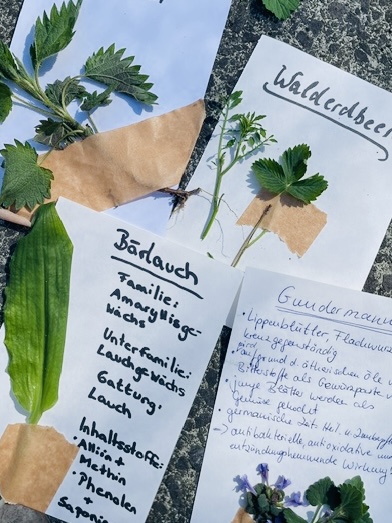 Walderdbeer
Bärlauch
Familie:
Amaryllisge-
wächs
Unterfamilie:
Lauchgewächs
Gattung:
Lauch
Inhaltsstoffe:
• Alliin +
Methiin
• Phenolen
+
Saponin
Gundermann
• Lippenblütler, Flachwurz
kreuzgegenständig
• aufgrund d. ätherischen Öle
Bitterstoffe als Gewürzpaste
• junge Blätter werden als
Gemüse gekocht
• germanische Zeit
→ antibakterielle, antioxidative
entzündungshemmende Wirkung